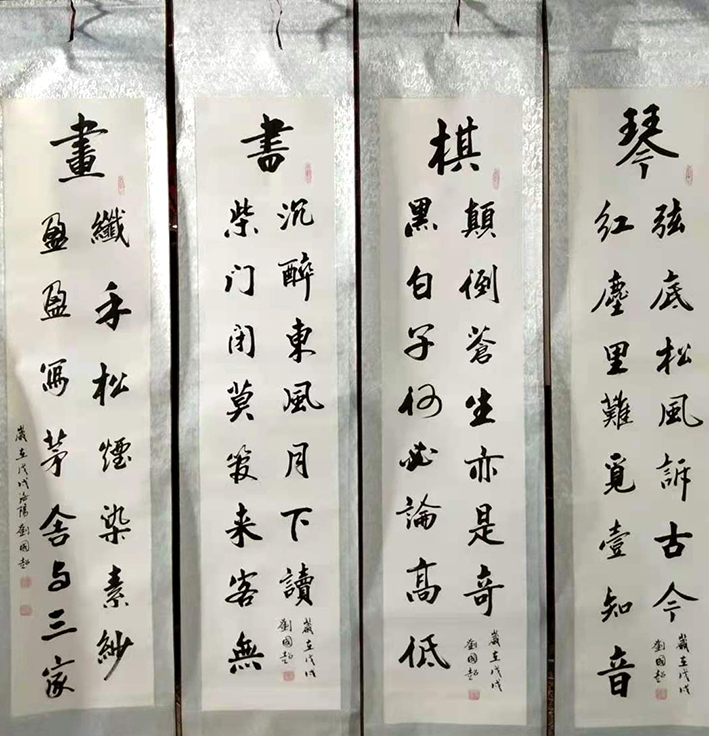 琴
弦底松風訴古今
红塵里難覓壹知音
歲在戊戌
劉國超
棋
顛倒蒼生亦是奇
黑白子何必論高低
歲在戊戌
劉國超
書
沉醉東風月下讀
柴门闭莫笑来客無
歲在戊戌
劉國超
畫
纖手松煙染素紗
盈盈寫茅舍与三家
歲在戊戌海陽劉國超